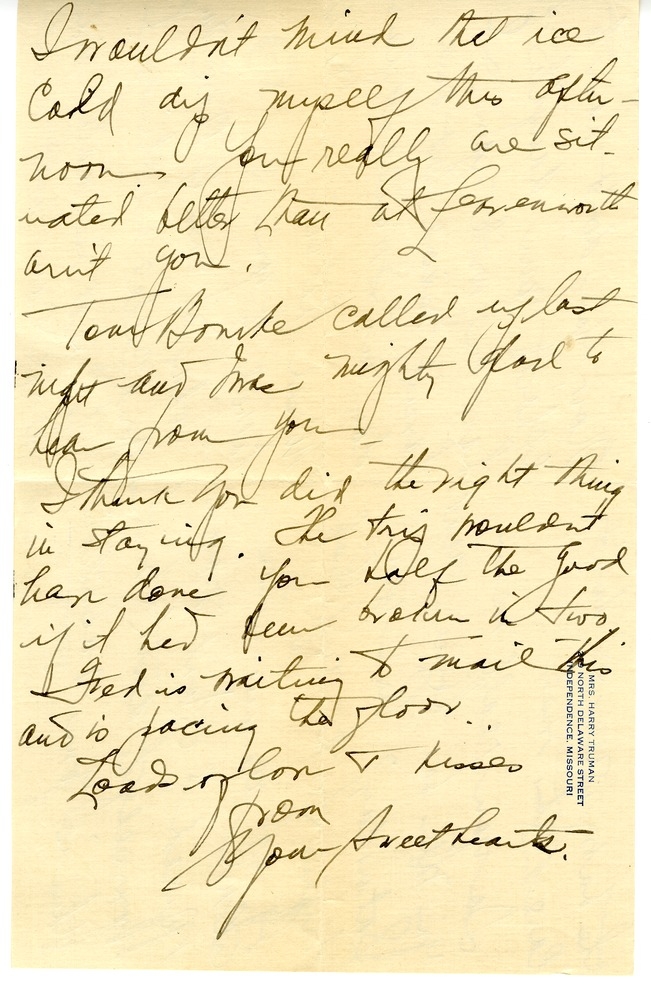 I wouldn't mind that ice
cold dip myself this after-
noon. You really are sit-
uated better than at Leavenworth
ain't you.
Tom Bourke called up last
night and was mighty glad to
hear from you -
I think you did the right thing
in staying. The trip wouldn't
have done you half the good
if it had been broken in two.
Fred is waiting to mail this
and is pacing the floor.
Loads of love & kisses
from
Your Sweethearts.
MRS. HARRY TRUMAN
NORTH DELAWARE STREET
INDEPENDENCE, MISSOURI